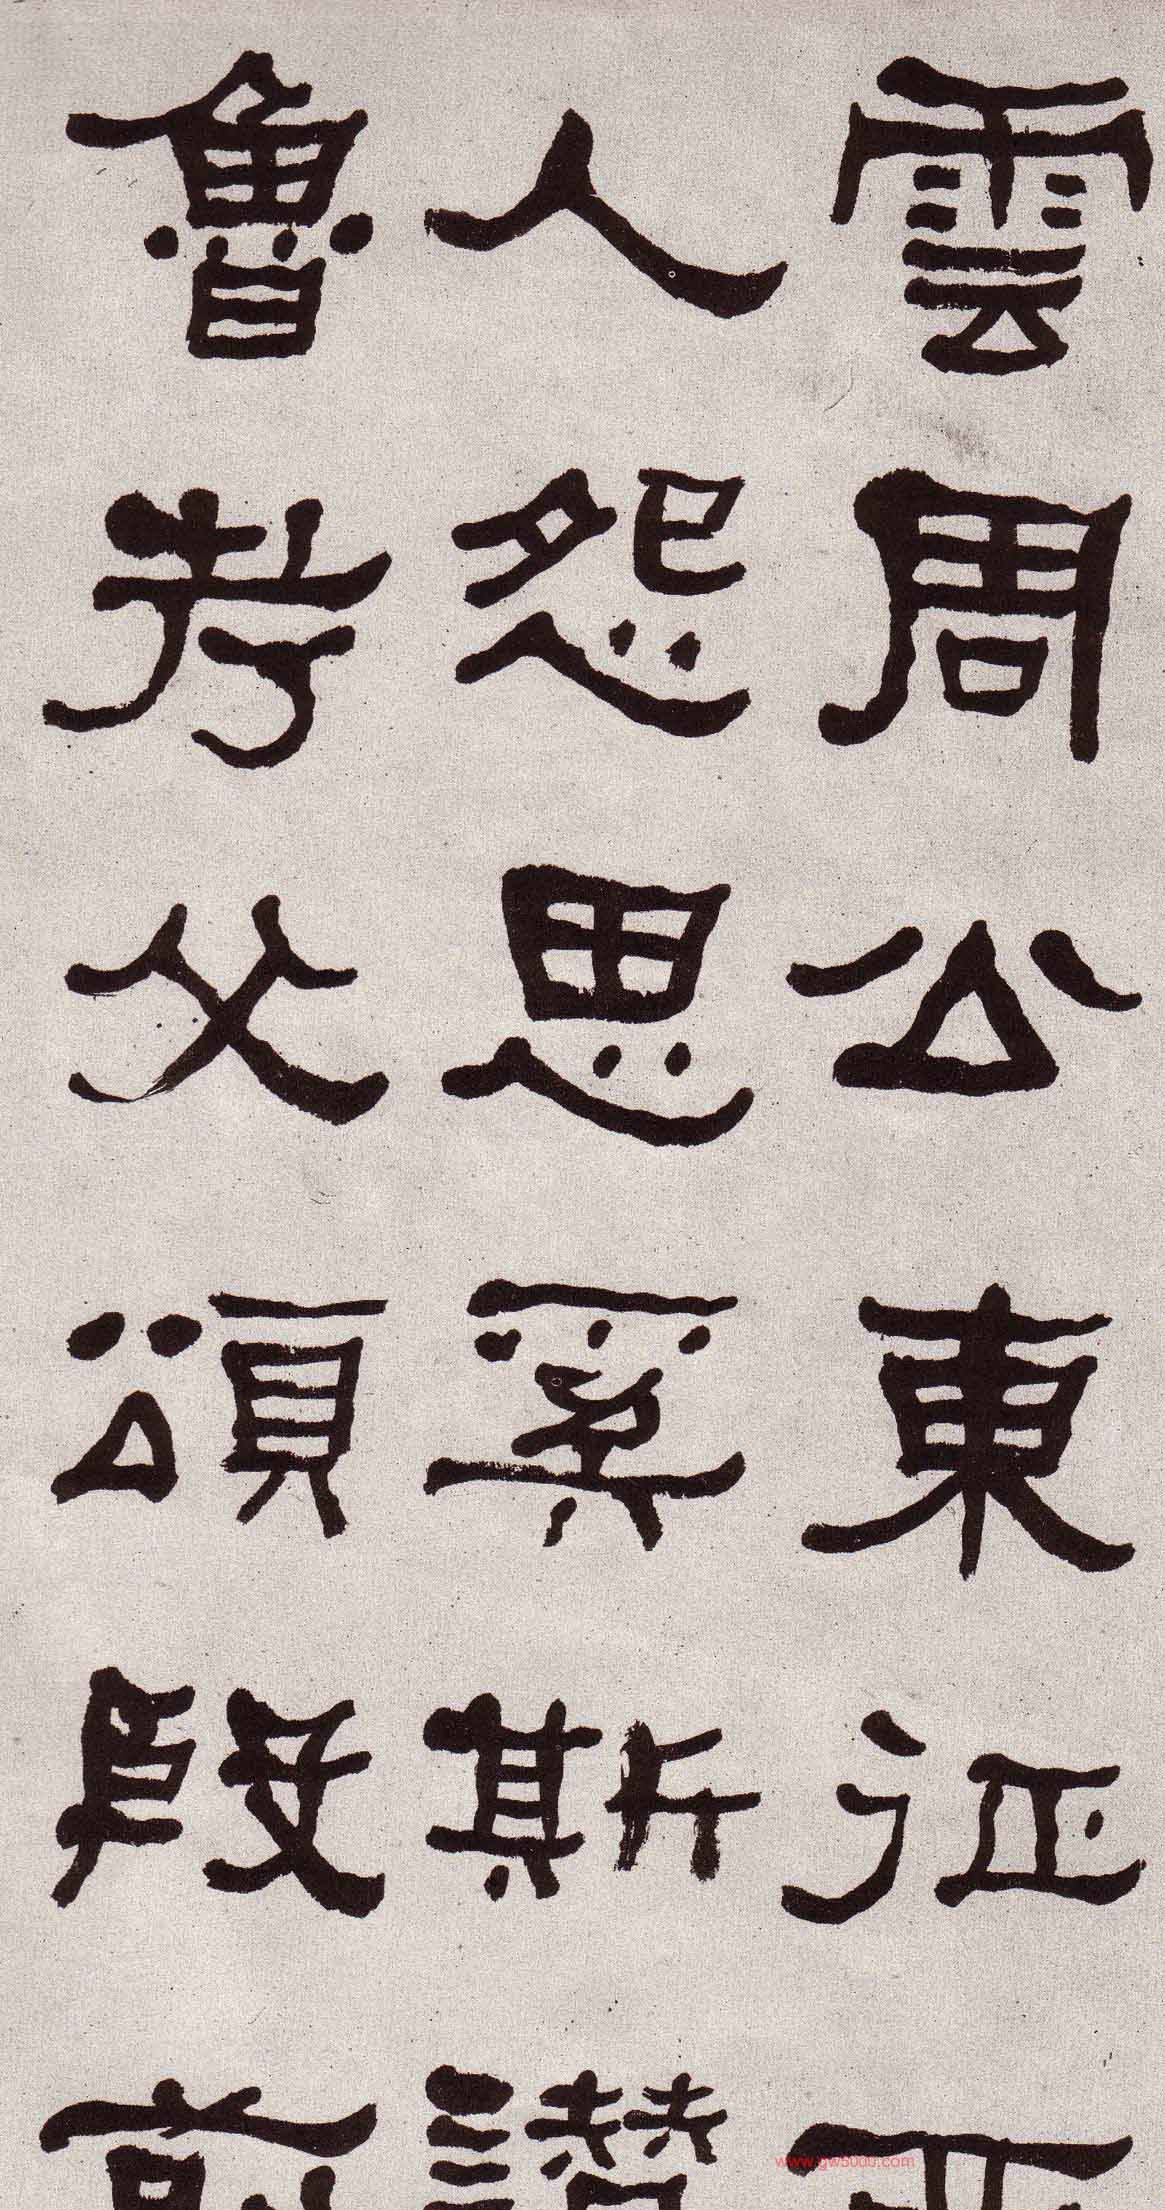 雲周公東征西
人怨思奚斯讚
魯考父頌殷前
www.gw5000.com